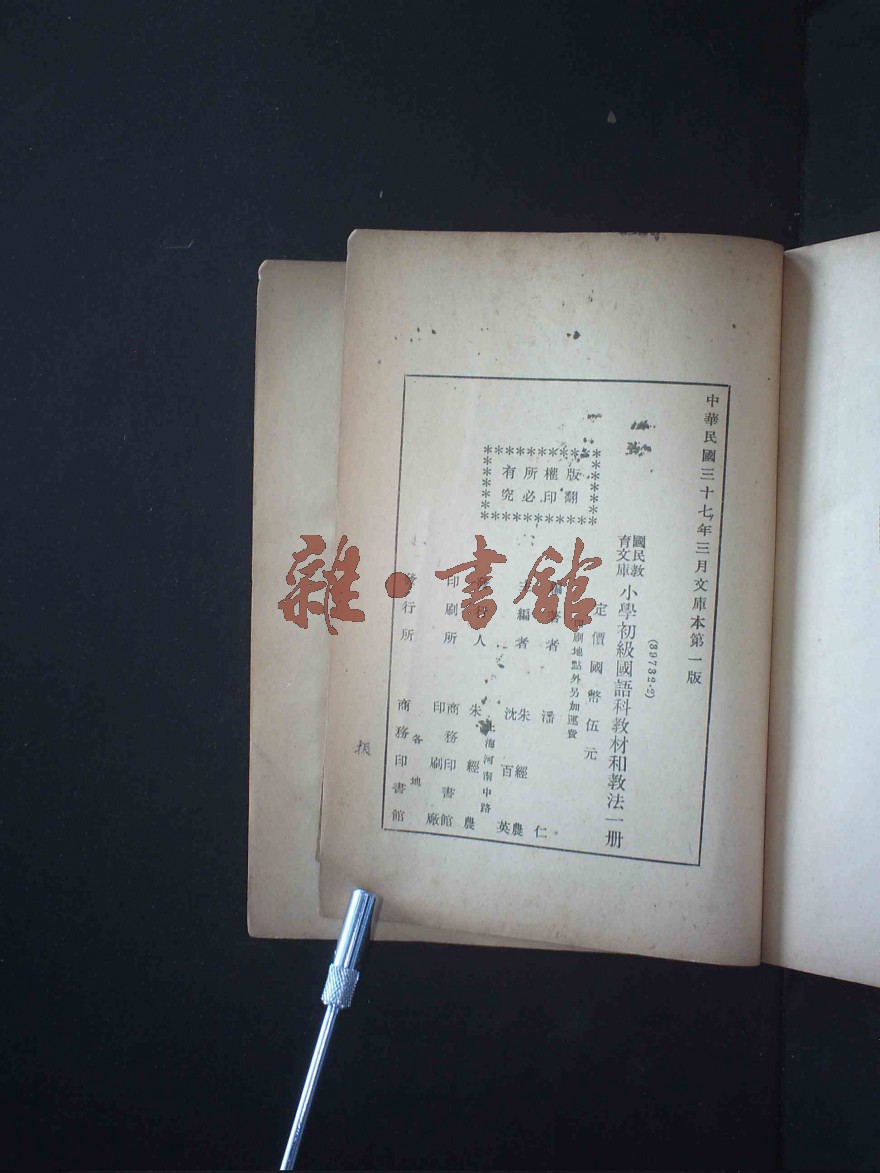 中華民國三十七年三月文庫本第一版
(89732·2)
國民教育文庫 小學初級國語科教材和教法一册
定價國幣伍元
印刷地點外另加運費
版權所有
翻印必究
編著者 潘仁
主編者 朱經農 沈百英
上海河南中路
發行人 朱經農
印刷所 商務印書館印刷廠
各地
發行所 商務印書館
雜·書館